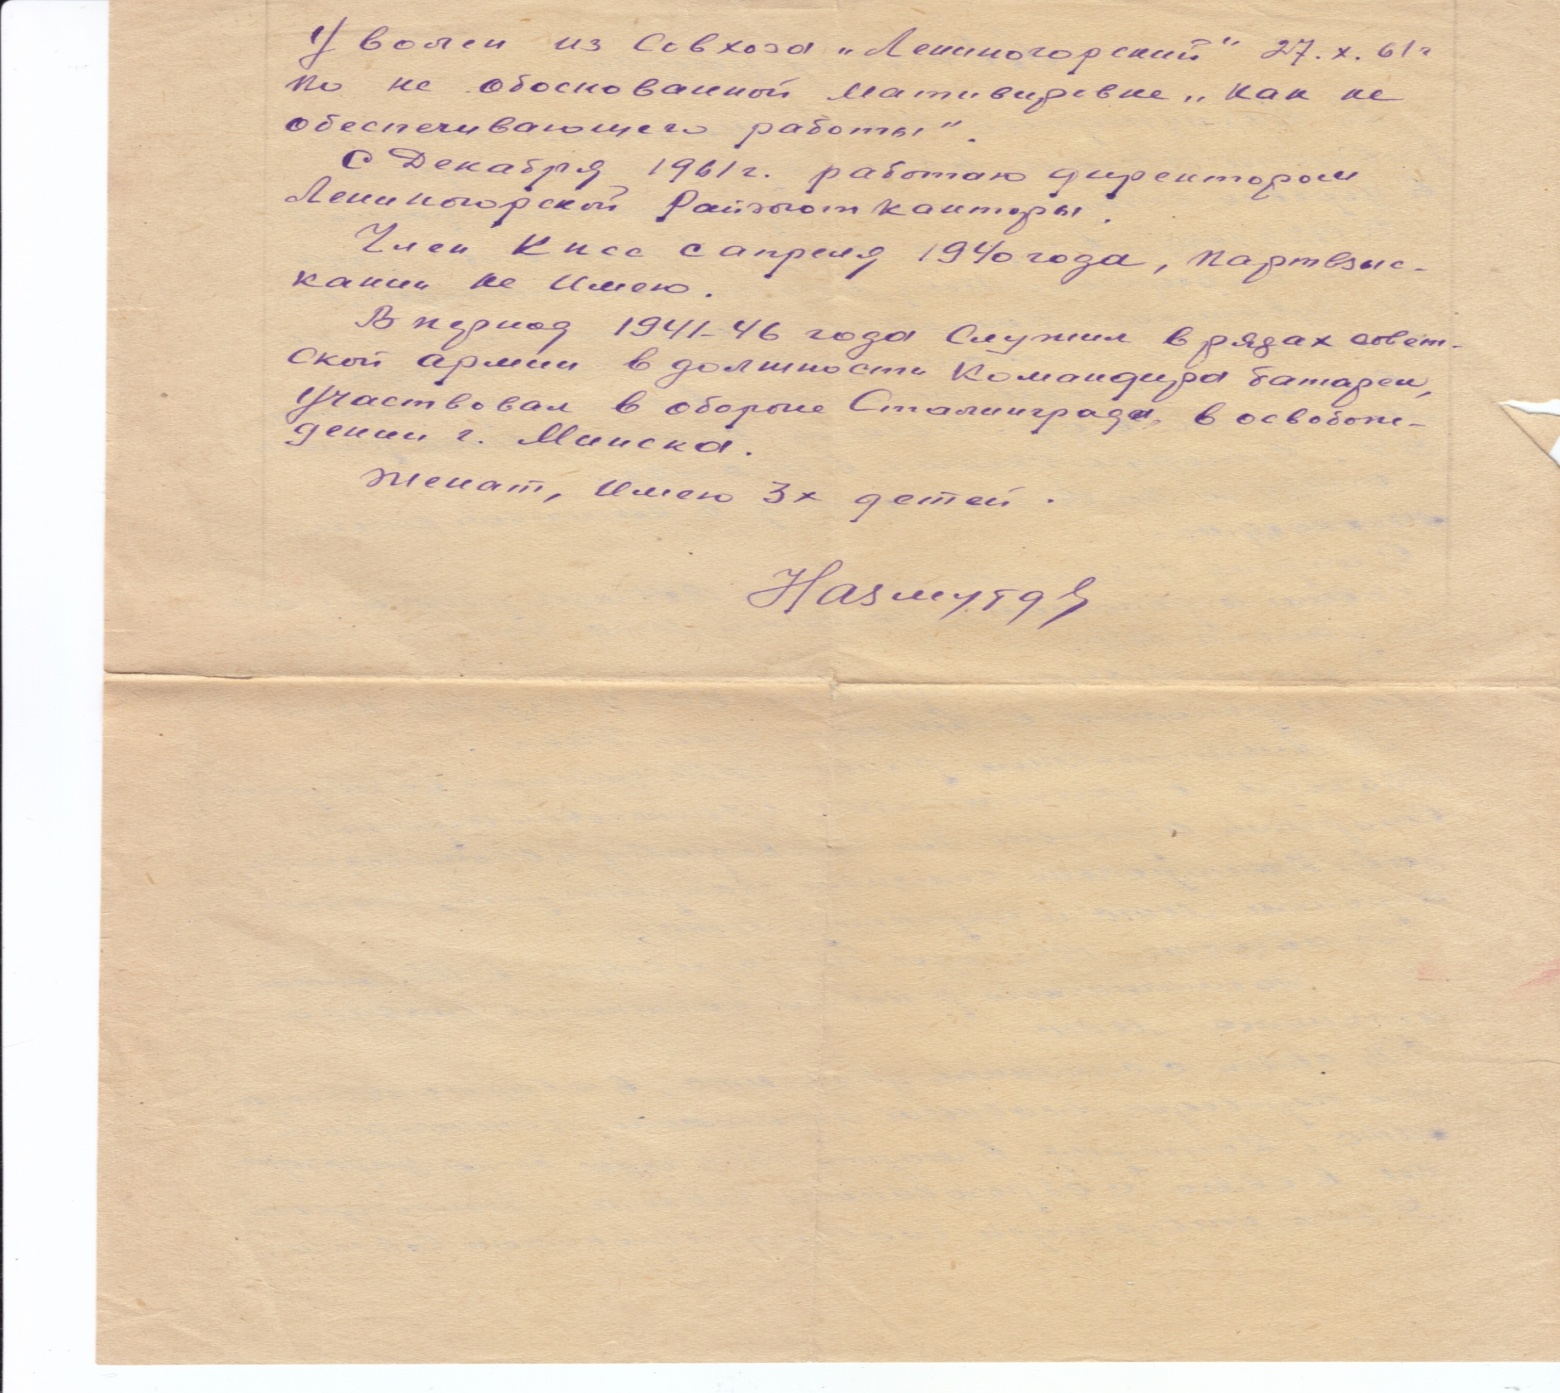 Уволен из Совхоза „Лениногорский" 27.х.61г
по не обоснованной мативировке „как не
обеспечивающего работы".
С Декабря 1961г. работаю директором
Лениногорской Райзагот канторы.
Член КПСС с апреля 1940 года, партвзыс-
каний не имею.
В период 1941-46 года Служил в рядах совет-
ской армии в должности Командира батареи,
Участвовал в обороне Сталинграда, в освобож-
дении г. Минска.
Женат, имею 3х детей.